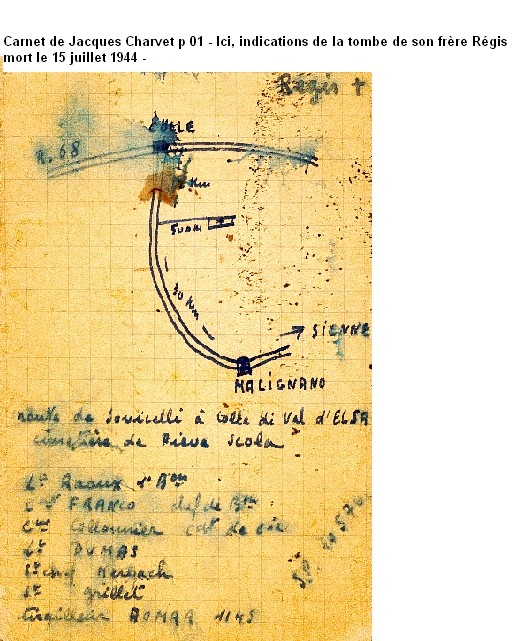 Carnet de Jacques Charvet p 01 - Ici, indications de la tombe de son frère Régis
mort le 15 juillet 1944 -
Régis +
COLLE
R. 68
Km
500m
30 Km
SIENNE
MALIGNANO
route de Sovicelli à Colle di Val d'ELSA
cimetière de Pieva Scola
Lt Raoux 1°
FRANCO chef de Btn
Cne Cdt de Cie
Lt DUMAS
Herbach
St Grillet
tirailleur 1145